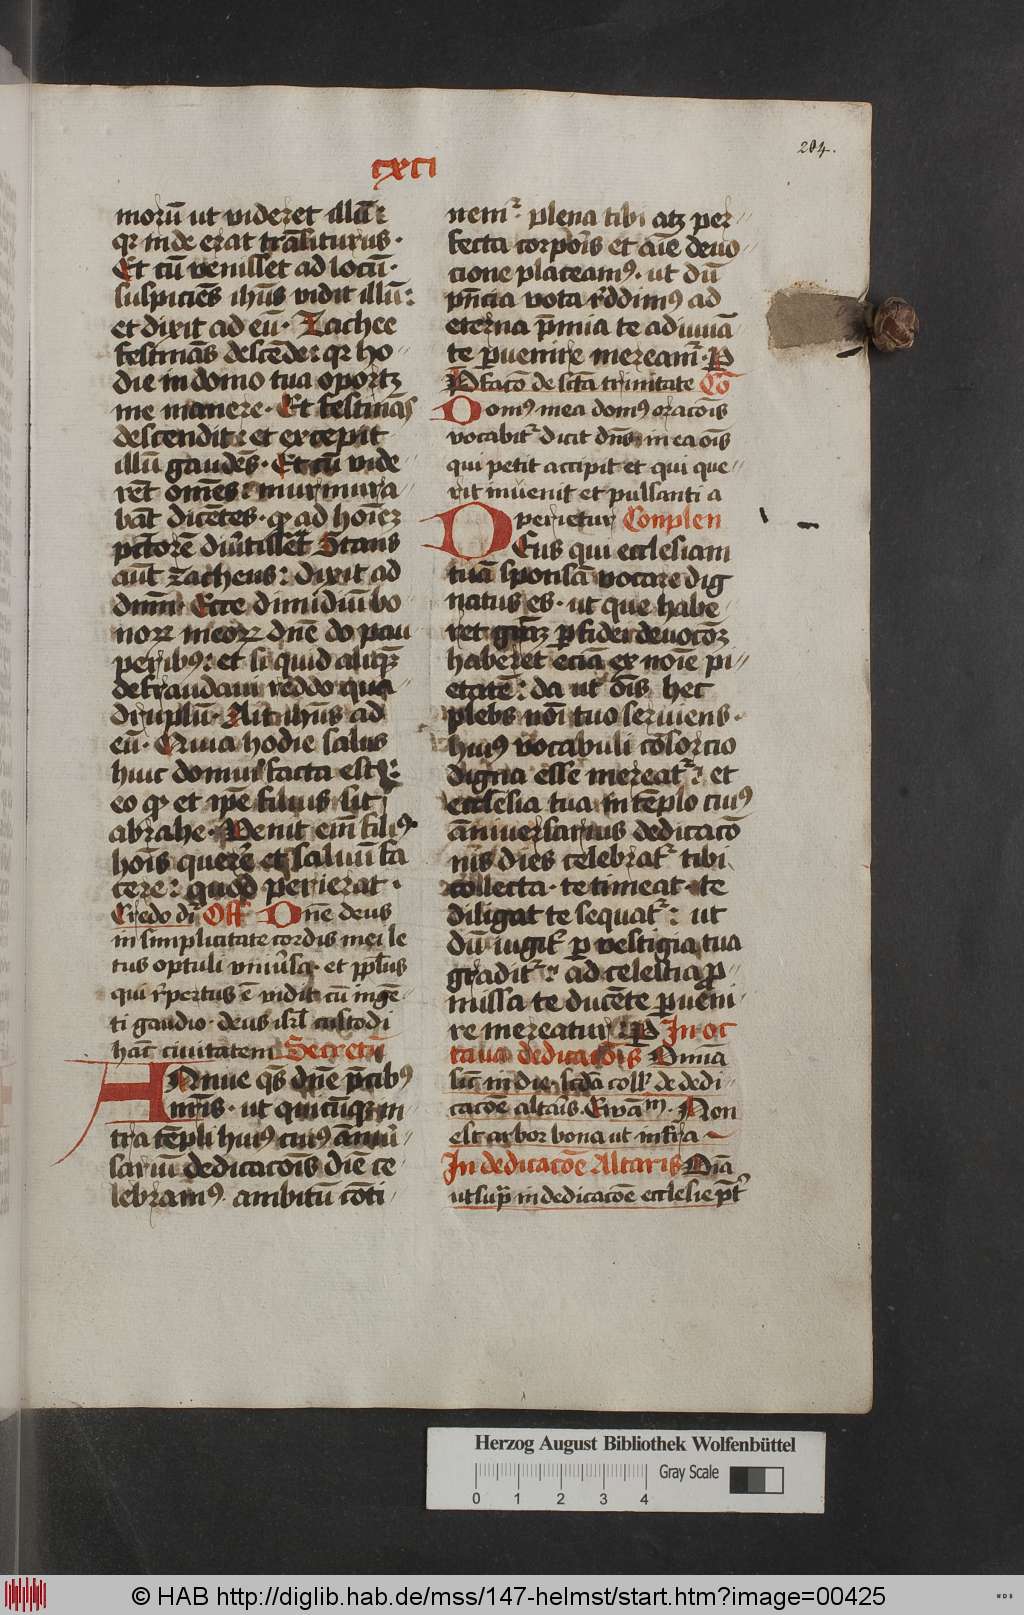 204.
cxci
morū ut videret illū:
qr inde erat trāsiturus.
Et cū venisset ad locū.
suspiciēs ihūs vidit illū:
et dixit ad eū. Zachee
festinās descēde: qr ho
die in domo tua oportꝫ
me manere. Et festinās
descendit: et excepit
illū gaudēs. Et cū vide
rēt om̄es: murmura
bāt dicētes. ꝙ ad hoīeꝫ
pctorē diūtisset Stans
aūt zacheus: dixit ad
dnm̄. Ecce dimidiū bo
noꝝ meoꝝ dnē do pau
peribꝰ: et si quid aliqꝫ
defraudavi reddo qua
druplū. Ait ihūs ad
eū. Quia hodie salus
huic domui facta est:
eo ꝙ et ip̄e filius sit
abrahe. Venit em̄ filiꝰ
hoīs querē et salvū fa
cere: quod perierat.
Credo dr̄ Off Dn̄e deus
in simplicitate cordis mei le
tus optuli univ̄sa. et ppl̄us
qui rep̄tus ē vidit cū ingē
ti gaudio. deus isrl̄ custodi
hāc civitatem Secretū
Annue qs̄ dnē p̄cibꝰ
nr̄is. ut quicūqꝫ in
tra tēpli huiꝰ cuiꝰ āniv̄
sariū dedicacōis diē ce
lebramꝰ. ambitū cōti
nemꝰ. plena tibi atqꝫ per
fecta corpōis et aīe devo
cione placeamꝰ. ut dū
p̄ncia vota r̄ddimꝰ ad
eterna p̄mia te adiuvā
te ꝑvenire mereamꝰ. ꝑ
Pfacō de sc̄ta trinitate Cō
Domꝰ mea domꝰ oracōis
vocabitꝰ dicit dn̄s in ea oīs
qui petit accipit et qui que
rit invenit et pulsanti a
perietur Conplen
DEus qui ecclesiam
tuā sponsā vocare dig
natus es. ut que habe
ret grāꝫ ꝑ fidei devocōꝫ
haberet eciā ex noīe pi
etatē: da ut oīs hec
plebs noī tuo serviens.
huiꝰ vocabuli cōsorcio
digna esse mereatꝰ: et
ecclesia tua in tēplo cuiꝰ
āniversarius dedicacō
nis dies celebratꝰ tibi
collecta. te timeat. te
diligat te sequatꝰ: ut
dū iugitꝰ ꝑ vestigia tua
graditꝰ: ad celestia ꝓ
missa te ducēte ꝑveni
re mereatur. ꝑ In oc
tava dedicacōis Omnia
sic̄ in die. sc̄da coll̄ de dedi
cacōe altāis. Ewāᵐ. Non
est arbor bona ut infra
In dedicacōe Altaris Oīa
ut sup̄ in dedicacōe ecclesie p̄t
Herzog August Bibliothek Wolfenbüttel
Gray Scale
0 1 2 3 4
© HAB http://diglib.hab.de/mss/147-helmst/start.htm?image=00425